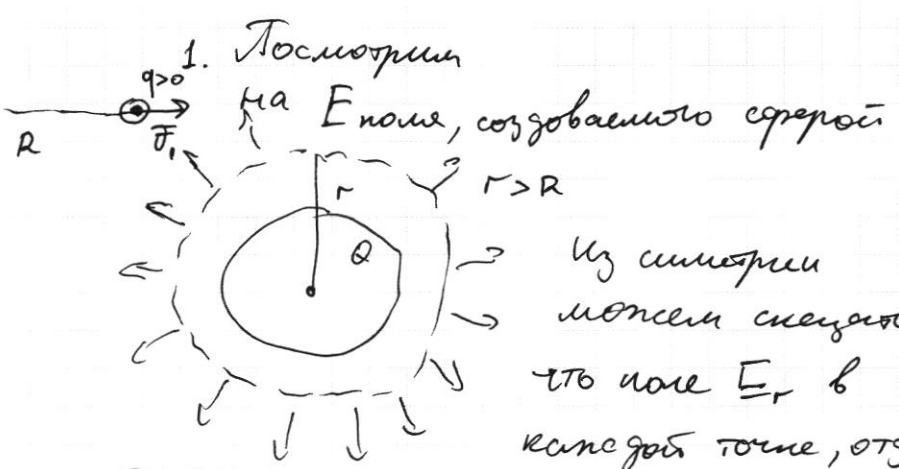 1. Посмотрим
q>0
на E поля, создоваемого сферой
R
F₁
r
r>R
Q
Из симетрии
можем сказать
что поле E_r в
каждой точке, отд